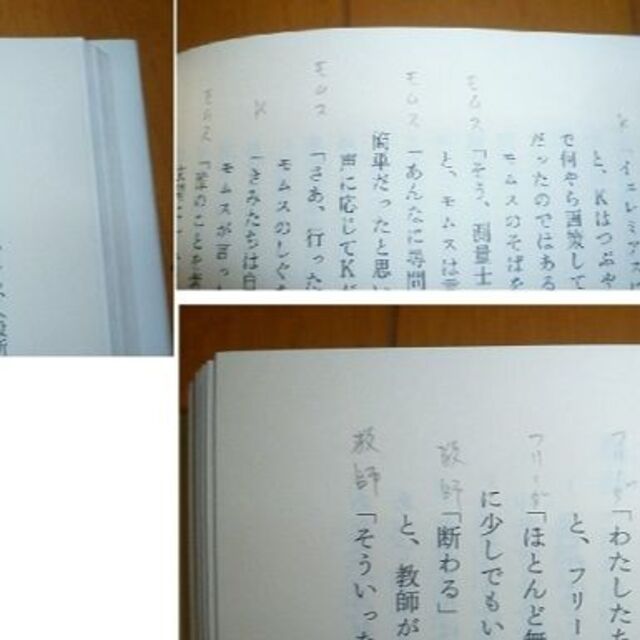 K
「イェレミアスに
と、Kはつぶや
で何やら画策して
だったのではある
モムスのそばを
モムス
「そう、測量士
と、モムスは言
モムス
「あんなに尋問
簡単だったと思い
声に応じてKが
モムス
「さあ、行った
モムスのしぐさ
K
「きみたちは自
モムスが言っ
モムス
フリーダ
「わたした
と、フリー
フリーダ
「ほとんど無
に少しでもい
教師
「断わる」
と、教師が
教師
「そういった